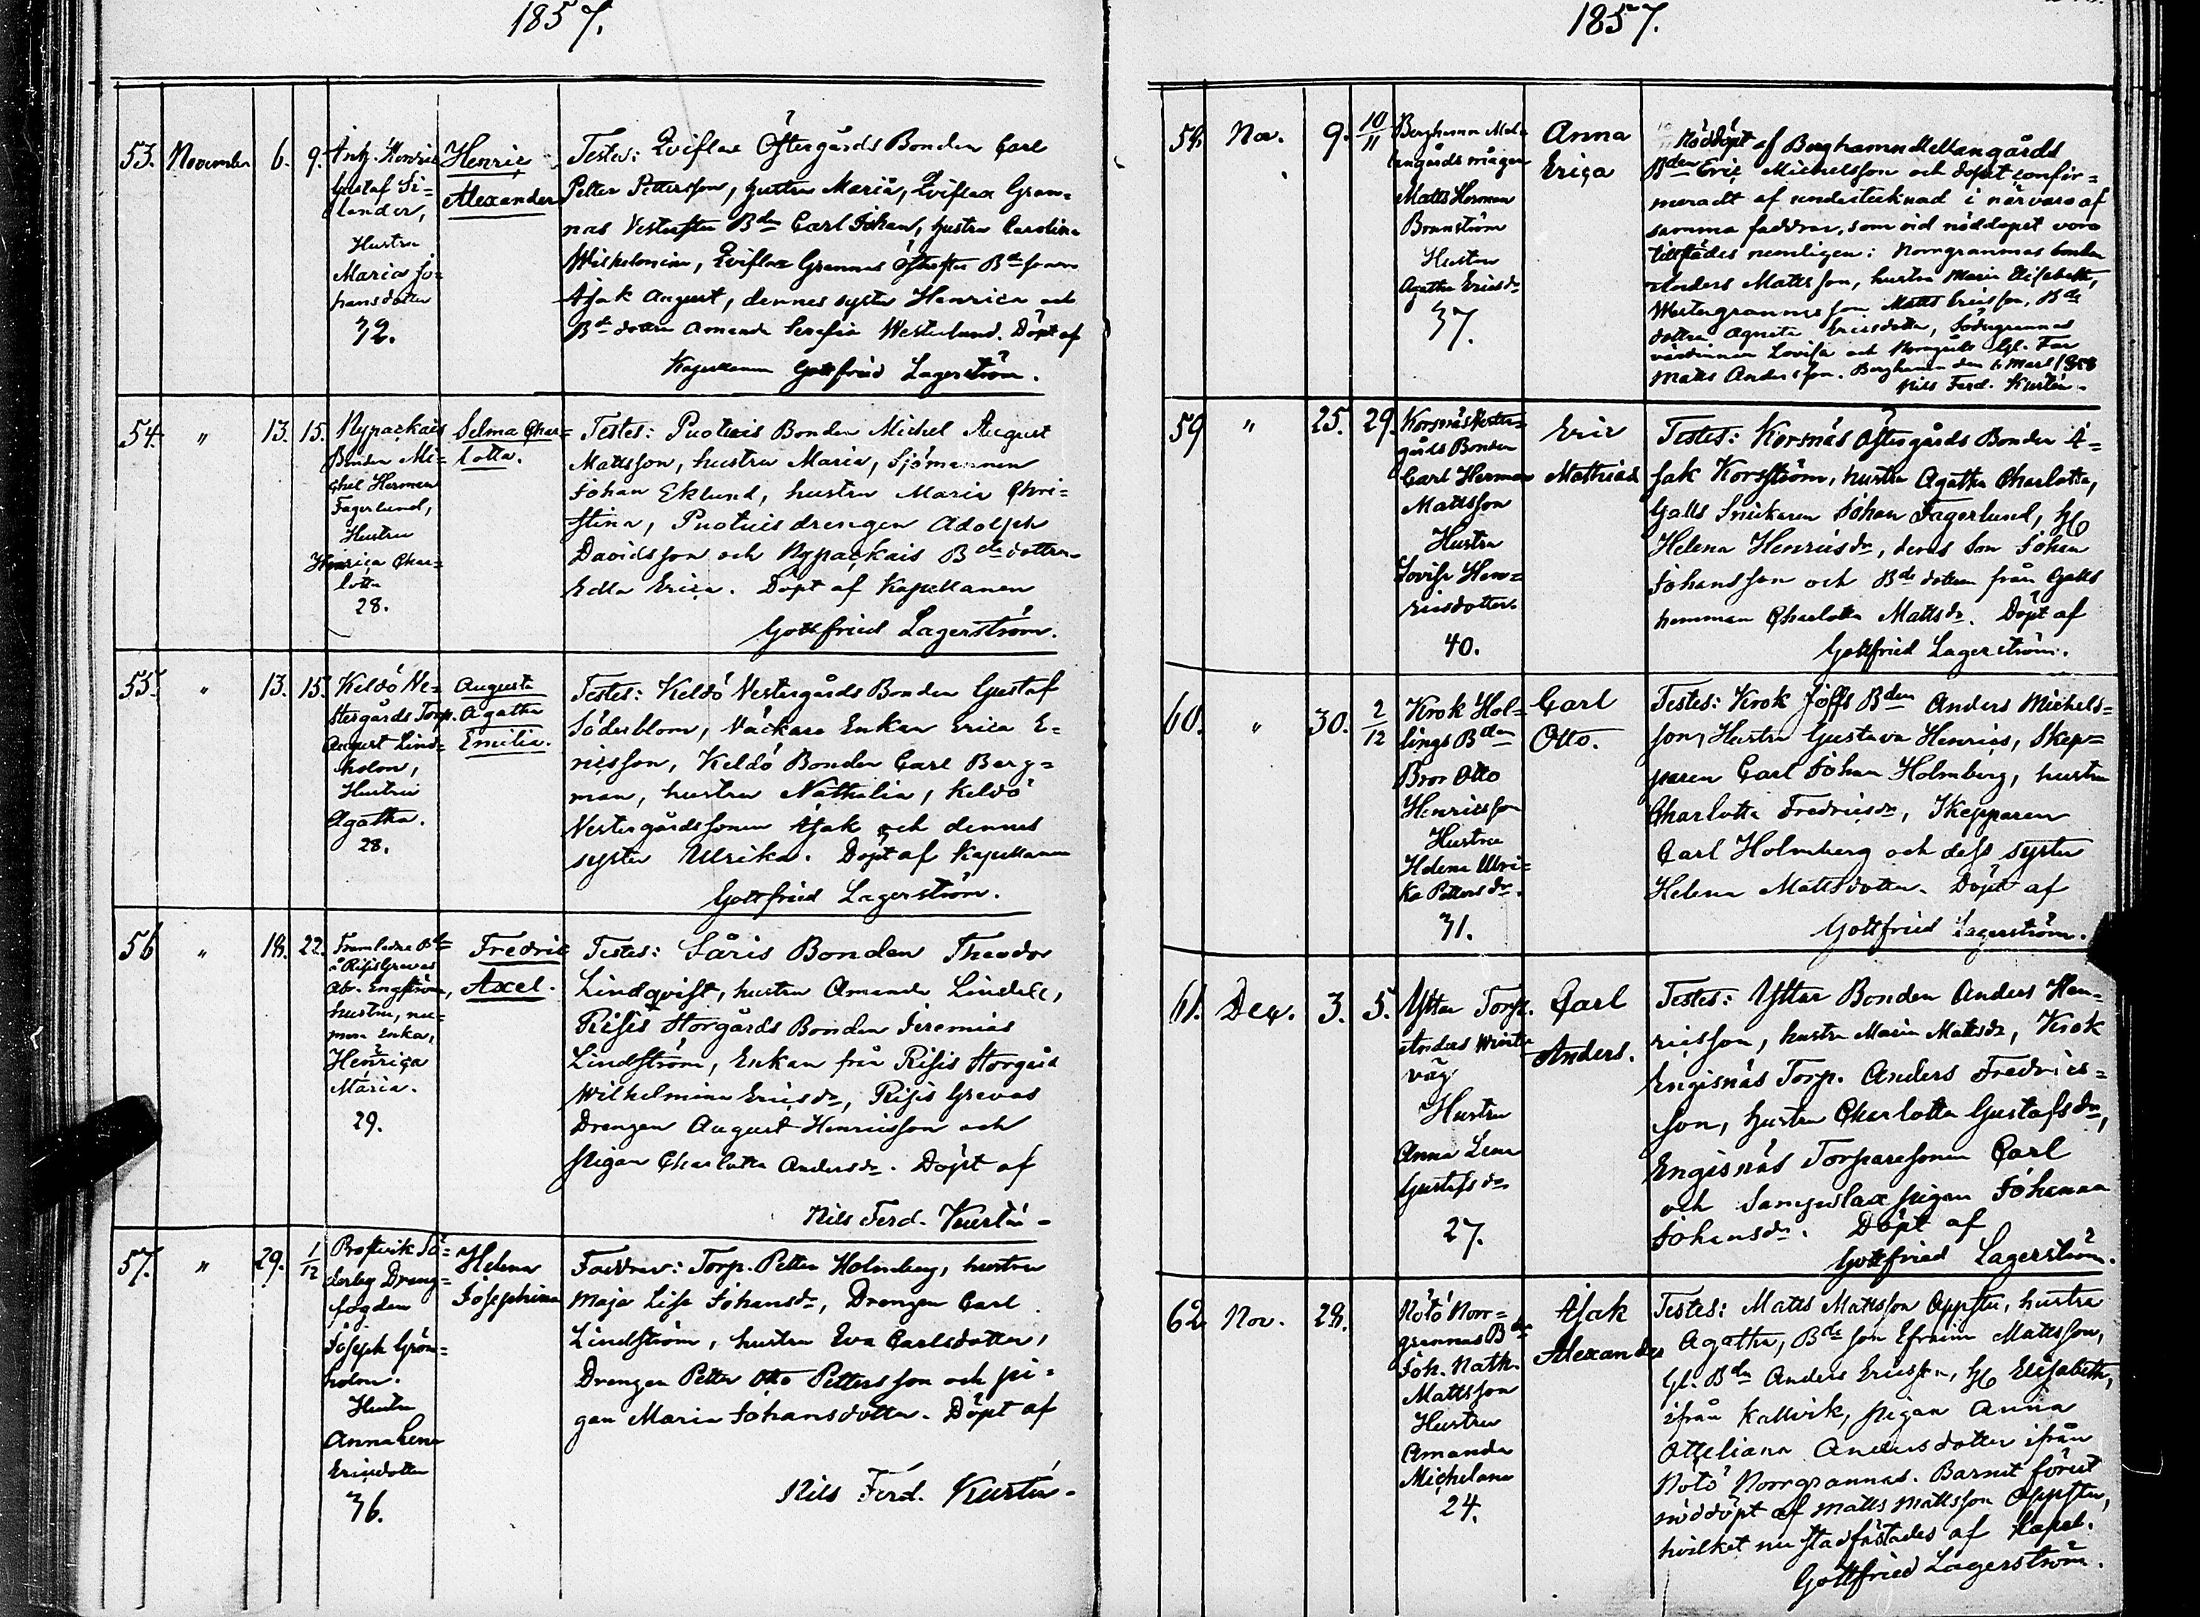 1857.
53. November 6. 9.
Henric
Gustaf Si=
lander,
Hustru
Maria Jo=
hansdotter
32.
Henric
Alexander
Testes: Qviflax Östergårds Bonden Carl
Petter Pettersson, hustru Maria, Qviflax Gran=
nas Carl Johan, hustru Carolina
Wilhelmina, Qviflax Grannas
Isak August, dennes syster Henrica och
Amanda Serafia Westerlund. Döpt af
Kapellanen Gottfried Lagerström.
54. " 13. 15.
Nypackais
Bonden Mi=
chel Herman
Fagerlund,
Hustru
Henrica Char=
lotta
28.
Selma Char=
lotta.
Testes: Puotuis Bonden Michel August
Mattsson, hustru Maria, Sjömannen
Johan Eklund, hustru Maria Chri=
stina, Puotuis drengen Adolph
Davidsson och Nypackais Bde dottren
Edla Erica. Döpt af Kapellanen
Gottfried Lagerström.
55. " 13. 15.
Keldö Ve=
stergårds Torp.
August Lind=
holm,
Hustru
Agatha.
28.
Augusta
Agatha
Emilia.
Testes: Keldö Vestergårds Bonden Gustaf
Söderblom, Enkan Erica E=
ricsson, Keldö Bonden Carl Berg=
man, hustru Nathalia, Keldö
Vestergårdssonen Isak och dennes
syster Ulrika. Döpt af Kapellanen
Gottfried Lagerström.
56 " 18. 22.
Framledne
å Risis Grevas
Abr. Engström,
hustru, nu=
mera Enka,
Henrica
Maria.
29.
Fredric
Axel.
Testes: Såris Bonden Theodor
Lindqvist, hustru Amanda Lindell,
Risis Storgårds Bonden Jeremias
Lindström, Enkan från Risis Storgård
Wilhelmina Ericsdr, Risis Grevas
Drengen August Henricsson och
pigan Charlotta Andersdr. Döpt af
Nils Ferd. Kurtén.
57. " 29. 1/12
Prostvik Sö=
derby Dreng=
fogden
Joseph Grön=
holm.
Hustru
Anna Lena
Ericsdotter
36.
Helena
Josephina
Faddrar: Torp. Petter Holmberg, hustru
Maja Lisa Johansdr, Drengen Carl
Lindström, hustru Eva Carlsdotter,
Drengen Petter Otto Pettersson och pi=
gan Maria Johansdotter. Döpt af
Nils Ferd. Kurtén.
1857.
58. Nov. 9. 10/11
Berghamn Mel=
langårds mågen
Matts Herman
Brunnström
Hustru
Agatha Ericsdr
37.
Anna
Erica
Nöddöpt af Berghamn Mellangårds
Bden Eric Michelsson och dopet confir=
meradt af undertecknad i närvaro af
samma faddrar, som vid nöddopet voro
tillstädes nemligen: Norrgrannas bonden
Anders Mattsson, hustru Maria Elisabeth,
Westergrannas son Matts Ericsson, Bde
dottren Agneta Ericsdotter, Södergrannas
värdinnan Lovisa och Norrgårds
Matts Andersson. Berghamn den 6 Mars 1858
Nils Ferd. Kurtén.
59 " 25. 29.
Korsnäs Vester=
gårds Bonden
Carl Herman
Mattsson
Hustru
Lovisa Hen=
ricsdotter.
40.
Eric
Mathias
Testes: Korsnäs Östergårds Bonden I=
sak Korsström, hustru Agatha Charlotta,
Galts Snickaren Johan Fagerlund, H.
Helena Henricsdr, deras son Johan
Johansson och Bde dottren från Galts
hemman Charlotta Mattsdr. Döpt af
Gottfried Lagerström.
60. " 30. 2/12
Krok Hol=
lings Bden
Bror Otto
Henricsson
Hustru
Helena Ulri=
ka Pettersdr.
31.
Carl
Otto.
Testes: Krok Jofs Bden Anders Michels=
son, Hustru Gustava Henrics, Skep=
paren Carl Johan Holmberg, hustru
Charlotta Fredricsdr, Skepparen
Carl Holmberg och dess syster
Helena Mattsdotter. Döpt af
Gottfried Lagerström.
61. Dec. 3. 5.
Ytter Torp.
Anders
Hustru
Anna Lena
Gustafsdr
27.
Carl
Anders.
Testes: Ytter Bonden Anders Hen=
ricsson, hustru Maria Mattsdr, Krok
Engisnäs Torp. Anders Fredrics=
son, hustru Charlotta Gustafsdr,
Engisnäs Torparesonen Carl
och Sampislax pigan Johanna
Johansdr. Döpt af
Gottfried Lagerström.
62 Nov. 28.
Nötö Norr=
grannas Bde
Joh. Nath.
Mattsson
Hustru
Amanda
Michelina
24.
Isak
Alexander
Testes: Matts Mattsson Öppsten, hustru
Agatha, Bde son Efraim Mattsson,
Gl. Bdn Anders Ericsson, H. Elisabeth,
ifrån Kallvik, pigan Anna
Otteliana Andersdotter ifrån
Nötö Norrgrannas. Barnet förut
nöddöpt af Matts Mattsson Öppsten,
hvilket nu stadfästades af Kapel.
Gottfried Lagerström.